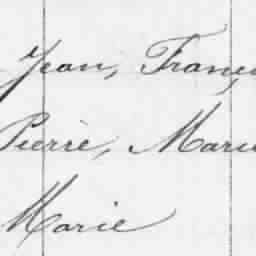 Jean, Franç
Pierre, Marie
Marie